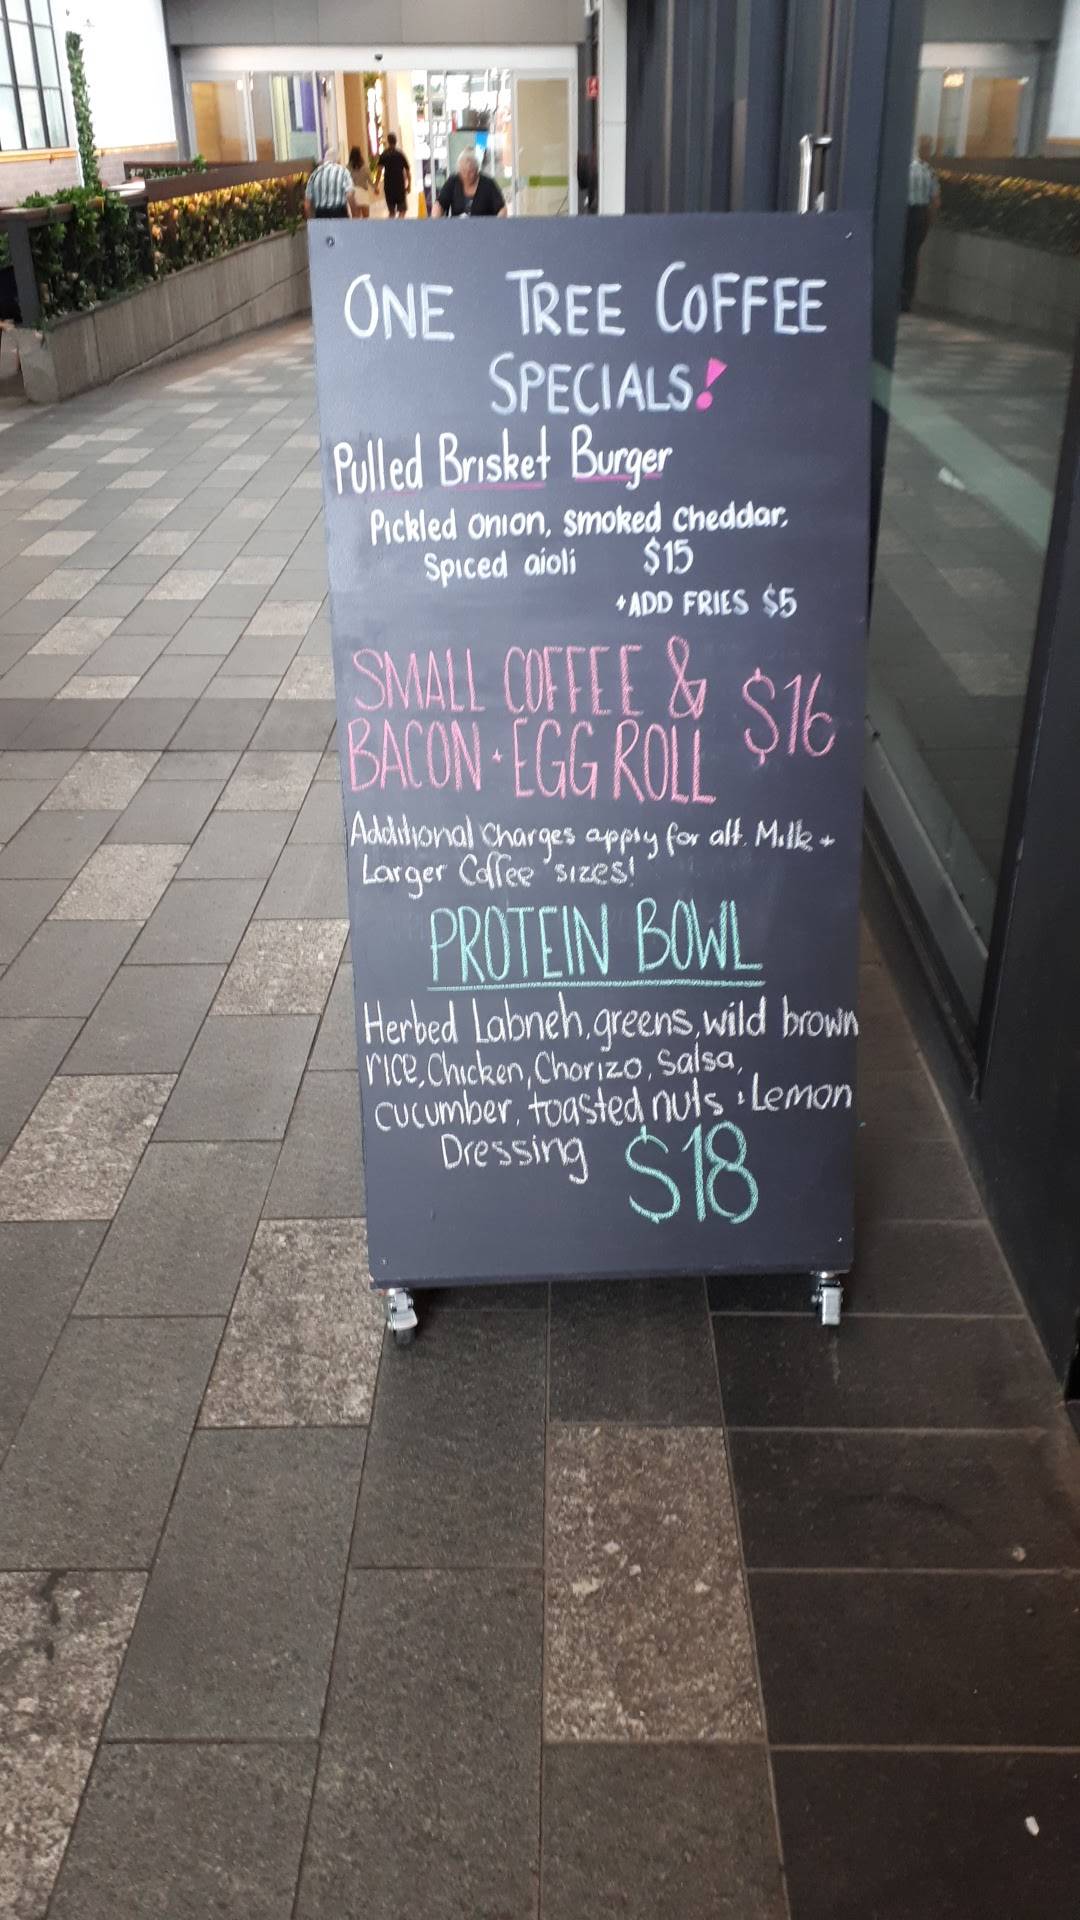 ONE TREE COFFEE
SPECIALS!
Pulled Brisket Burger
Pickled onion, smoked cheddar,
Spiced aioli $15
+ADD FRIES $5
SMALL COFFEE & $16
BACON + EGG ROLL
Additional Charges apply for alt. Milk +
Larger Coffee sizes!
PROTEIN BOWL
Herbed Labneh, greens, wild brown
rice, Chicken, Chorizo, Salsa,
cucumber, toasted nuts + Lemon
Dressing $18